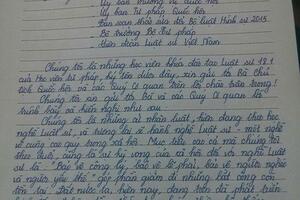 - Ủy ban thường vụ Quốc hội
- Ủy ban Tư pháp Quốc hội
- Ban soạn thảo sửa đổi Bộ luật Hình sự 2015
- Bộ trưởng Bộ Tư pháp
- Liên đoàn Luật sư Việt Nam
Chúng tôi là những học viên khóa đào tạo luật sư 18.1
của Học viện Tư pháp, ký tên dưới đây, xin gửi tới Bà Chủ
tịch Quốc hội và các Quý Cơ quan lời chào trân trọng!
Chúng tôi xin gửi tới Bà và các Quý Cơ quan
trình bày và kiến nghị như sau:
Chúng tôi là những cử nhân luật, hiện đang theo học
nghề luật sư, và tương lai sẽ hành nghề luật sư - một nghề
vô cùng cao quý trong xã hội. Mục tiêu cao cả mà chúng tôi
theo đuổi, cũng là sự kỳ vọng của xã hội đối với nghề luật
sư là "Bảo vệ công lý, bảo vệ lẽ phải, bảo vệ người nghèo
và người yếu thế" góp phần giảm đi những bất công còn
tồn tại. Đất nước ta, hiện nay, đang trên đà phát triển